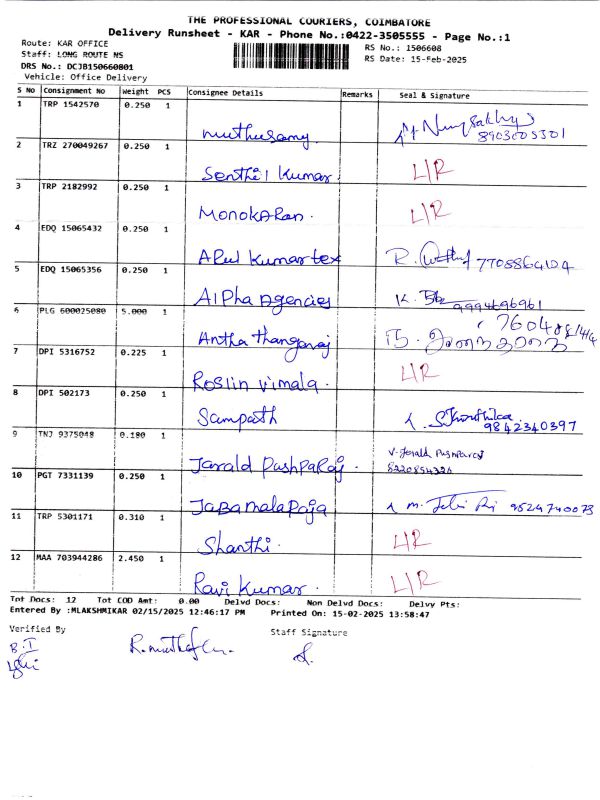 THE PROFESSIONAL COURIERS, COIMBATORE
Delivery Runsheet - KAR - Phone No.:0422-3505555 - Page No.:1
Route: KAR OFFICE
RS No.: 1506608
Staff: LONG ROUTE NS
RS Date: 15-Feb-2025
DRS No.: DCJB150660801
Vehicle: Office Delivery
S No Consignment No Weight PCS Consignee Details Remarks Seal & Signature
1 TRP 1542570 0.250 1
muthusamy
2 TRZ 270049267 0.250 1
Senthil Kumar L/R
3 TRP 2182992 0.250 1
MONOKARAN. L/R
4 EDQ 15065432 0.250 1
ARul Kumar tex R.
5 EDQ 15065356 0.250 1
AlPha Agencies K. 9994696961
6 PLG 600025080 5.000 1
Antha thangaraj
7 DPI 5316752 0.225 1
Roslin vimala. L/R
8 DPI 502173 0.250 1
Sampath 9842340397
9 TNJ 9375048 0.180 1
Jarald PashpaRaj. V. Jerald Pushparaj
10 PGT 7331139 0.250 1
JabamalaRaja 9524740073
11 TRP 5301171 0.310 1
Shanthi. L/R
12 MAA 703944286 2.450 1
Ravi Kumar L/R
Tot Docs: 12 Tot COD Amt: 0.00 Delvd Docs: Non Delvd Docs: Delvy Pts:
Entered By :MLAKSHMIKAR 02/15/2025 12:46:17 PM Printed On: 15-02-2025 13:58:47
Verified By Staff Signature